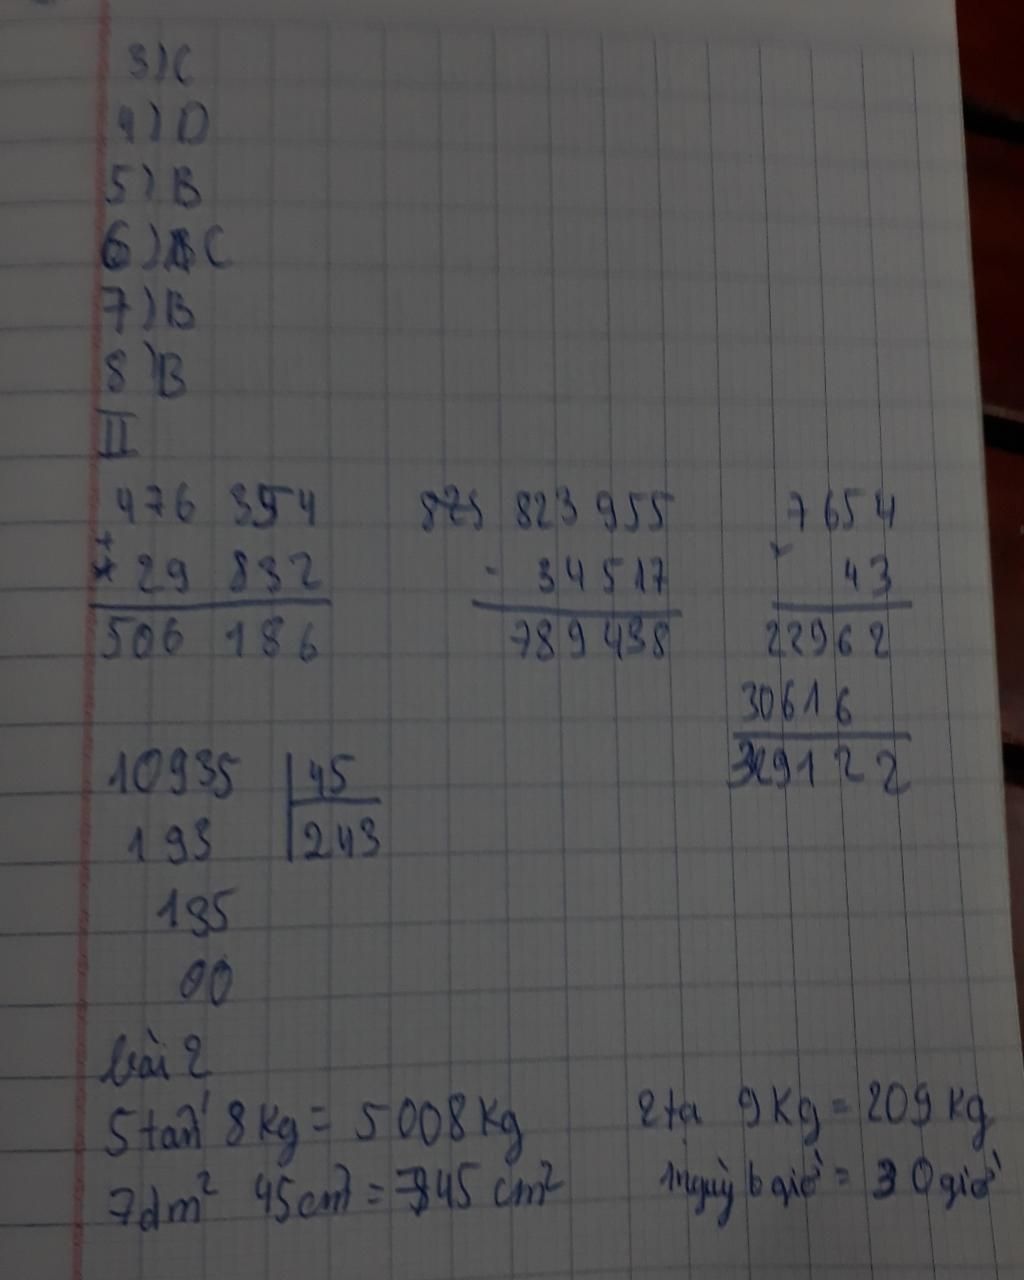 3) C
4) D
5) B
6) C
7) B
8) B
II
476 354 823 955 7654
+ - ×
29 832 34 517 43
506 186 789 438 22962
30616
329122
10935 45
193 243
135
00
bài 2
5 tấn 8 Kg = 5 008 Kg 2 tạ 9 Kg = 209 Kg
7dm² 45cm² = 745 cm² 1 ngày 6 giờ = 30 giờ